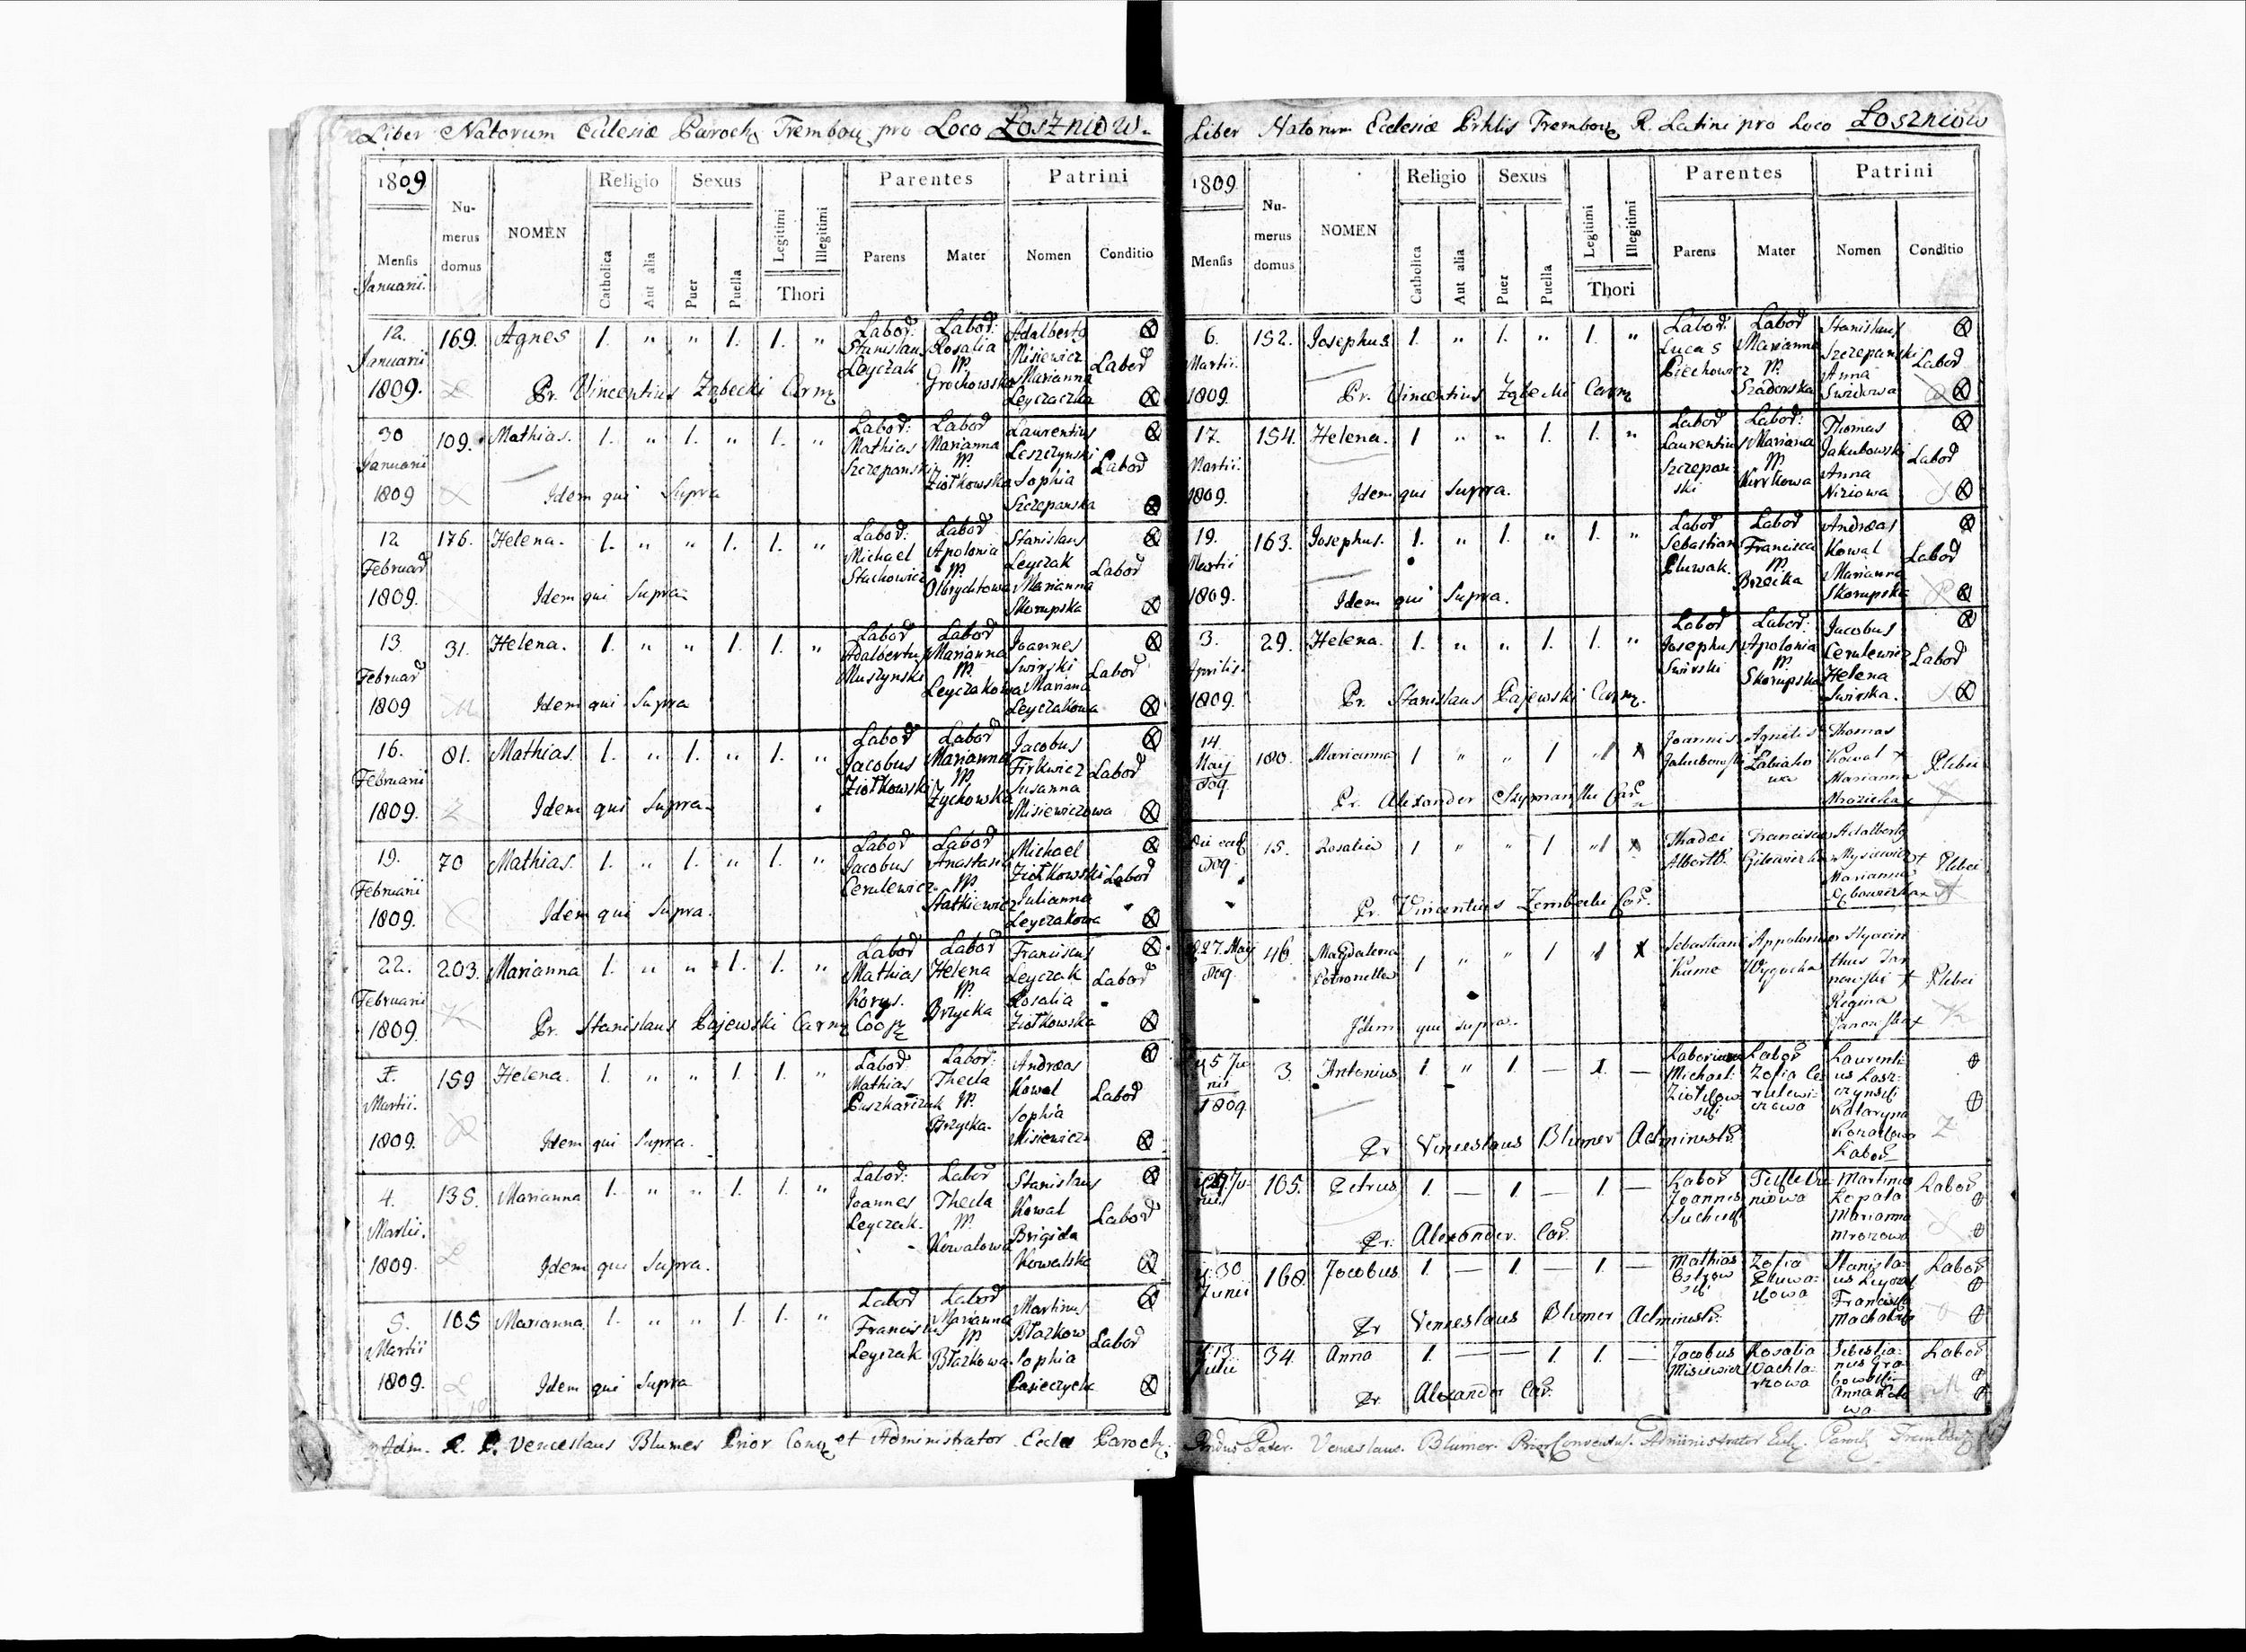 Liber Natorum Ecclesiæ Paroch Trembow pro Loco Łoszniow.
1809
Numerus domus
NOMEN
Religio
Sexus
Parentes
Patrini
Mensis
Januarii
Catholica
Aut alia
Puer
Puella
Legitimi
Illegitimi
Thori
Parens
Mater
Nomen
Conditio
12. Januarii 1809. 169. Agnes 1. " " 1. 1. " Labor: Stanislaus Leyczak Labor: Rosalia N. Grochowska Adalbertg Misiewicz Marianna Leyczaczka Labor
Pr. Vincentius Ząbecki Carm
30 Januarii 1809 109. Mathias. 1. " 1. " 1. " Labor: Mathias Szczepanski Labor Marianna N. Ziółkowska Laurentius Leszczynski Sophia Szczepanska Labor
Idem qui Supra
12 Februar 1809. 176. Helena. 1. " " 1. 1. " Labor: Michael Stachowicz Labor Apolonia N. Olbrychtowa Stanislaus Leyczak Marianna Skorupska Labor
Idem qui Supra
13. Februar 1809 31. Helena. 1. " " 1. 1. " Labor Adalbertus Muszynski Labor Marianna N. Leyczakowa Joannes Swirski Mariana Leyczakowa Labor
Idem qui Supra
16. Februarii 1809. 81. Mathias. 1. " 1. " 1. " Labor Jacobus Ziółkowski Labor Marianna N. Zychowska Jacobus Firkwicz Susanna Misiewiczowa Labor
Idem qui Supra
19. Februarii 1809. 70 Mathias. 1. " 1. " 1. " Labor Jacobus Cerulewicz Labor Anastasia N. Statkiewicz Michael Ziółkowski Julianna Leyczakowa Labor
Idem qui Supra.
22. Februarii 1809. 203. Marianna 1. " " 1. 1. " Labor Mathias Korys. Labor Helena N. Brzycka Franciscus Leyczak Rosalia Ziółkowska Labor
Pr. Stanislaus Pajewski Carm Coop
Martii. 1809. 159 Helena. 1. " " 1. 1. " Labor: Mathias Puszkarczuk Labor: Thecla N. Brzycka. Andreas Kowal Sophia Misiewicz Labor
Idem qui Supra.
4. Martii. 1809. 135. Marianna 1. " " 1. 1. " Labor: Joannes Leyczak. Labor Thecla N. Kowalowa Stanislaus Kowal Brigida Kowalska Labor
Idem qui Supra.
5. Martii 1809. 105 Marianna. 1. " " 1. 1. " Labor Franciscus Leyczak Labor Marianna N. Błazkowa Martinus Błazkow Sophia Pasieczycka Labor
Idem qui Supra
Adm. R. P. Venceslaus Blumer Prior Conv et Administrator Eccle Paroch.
Liber Natorum Ecclesiæ Prhlis Trembow R. Latini pro Loco Łoszniow
1809.
Numerus domus
NOMEN
Religio
Sexus
Parentes
Patrini
Mensis
Catholica
Aut alia
Puer
Puella
Legitimi
Illegitimi
Thori
Parens
Mater
Nomen
Conditio
6. Martii. 1809. 152. Josephus 1. " 1. " 1. " Labor: Lucas Piechowicz Labor Marianna N. Szadowska Stanislaus Szczepanski Anna Swidowa Labor
Pr. Vincentius Ząbecki Carm
17. Martii. 1809. 154. Helena. 1 " " 1. 1. " Labor Laurentius Szczepanski Labor: Mariana N. Thomas Jakubowski Anna Niziowa Labor
Idem qui Supra.
19. Martii 1809. 163. Josephus. 1. " 1. " 1. " Labor Sebastian Pluwak. Labor Francisca N. Brzecka Andreas Kowal Marianna Skorupska Labor
Idem qui Supra.
3. Aprilis 1809. 29. Helena. 1. " " 1. 1. " Labor Josephus Swirski Labor: Apolonia N. Skorupska Jacobus Cerulewicz Helena Swirska. Labor
Pr. Stanislaus Pajewski Carm.
14. Maij 809. 180. Marianna 1 " " 1 1 x Joannis Jakubowski Agnetis Thomas Kowal + Marianna Plebei
Pr. Alexander Szymanski Car
809. 15. Rosalia 1 " " 1 1 x Thadei Francisca Adalbertg Mysiewicz + Marianna Plebei
Pr. Vincentius Zembecki Car.
27. May 809. 46. Magdalena Petronella 1 " " 1 1 x Sebastiani Kuma Appolonia Wygocka Hyacinthus Janowski + Regina Janowska + Plebei
Idem qui supra.
5 Junii 1809 3. Antonius 1 " 1 — 1. — Michael Ziołkowski Labor Zofia Cerulewiczowa Laurentius Laszczynski Kataryna Labor
Pr Venceslaus Blumer Administr.
105. Petrus 1. — 1 — 1 — Labor Joannes Martinus Lopata Marianna Mrozowa Labor
Pr. Alexander Car.
30 Junii 168. Jacobus. 1 — 1 — 1 — Mathias Zofia Stanislaus Leyczak Labor
Pr Venceslaus Blumer Administr.
13 Julii 34. Anna 1 — — 1 1. — Jacobus Misiewicz Rosalia Sebastianus Anna Labor
Pr. Alexander Car.
Pater Venceslaus Blumer Prior Conventus Administrator Paroch